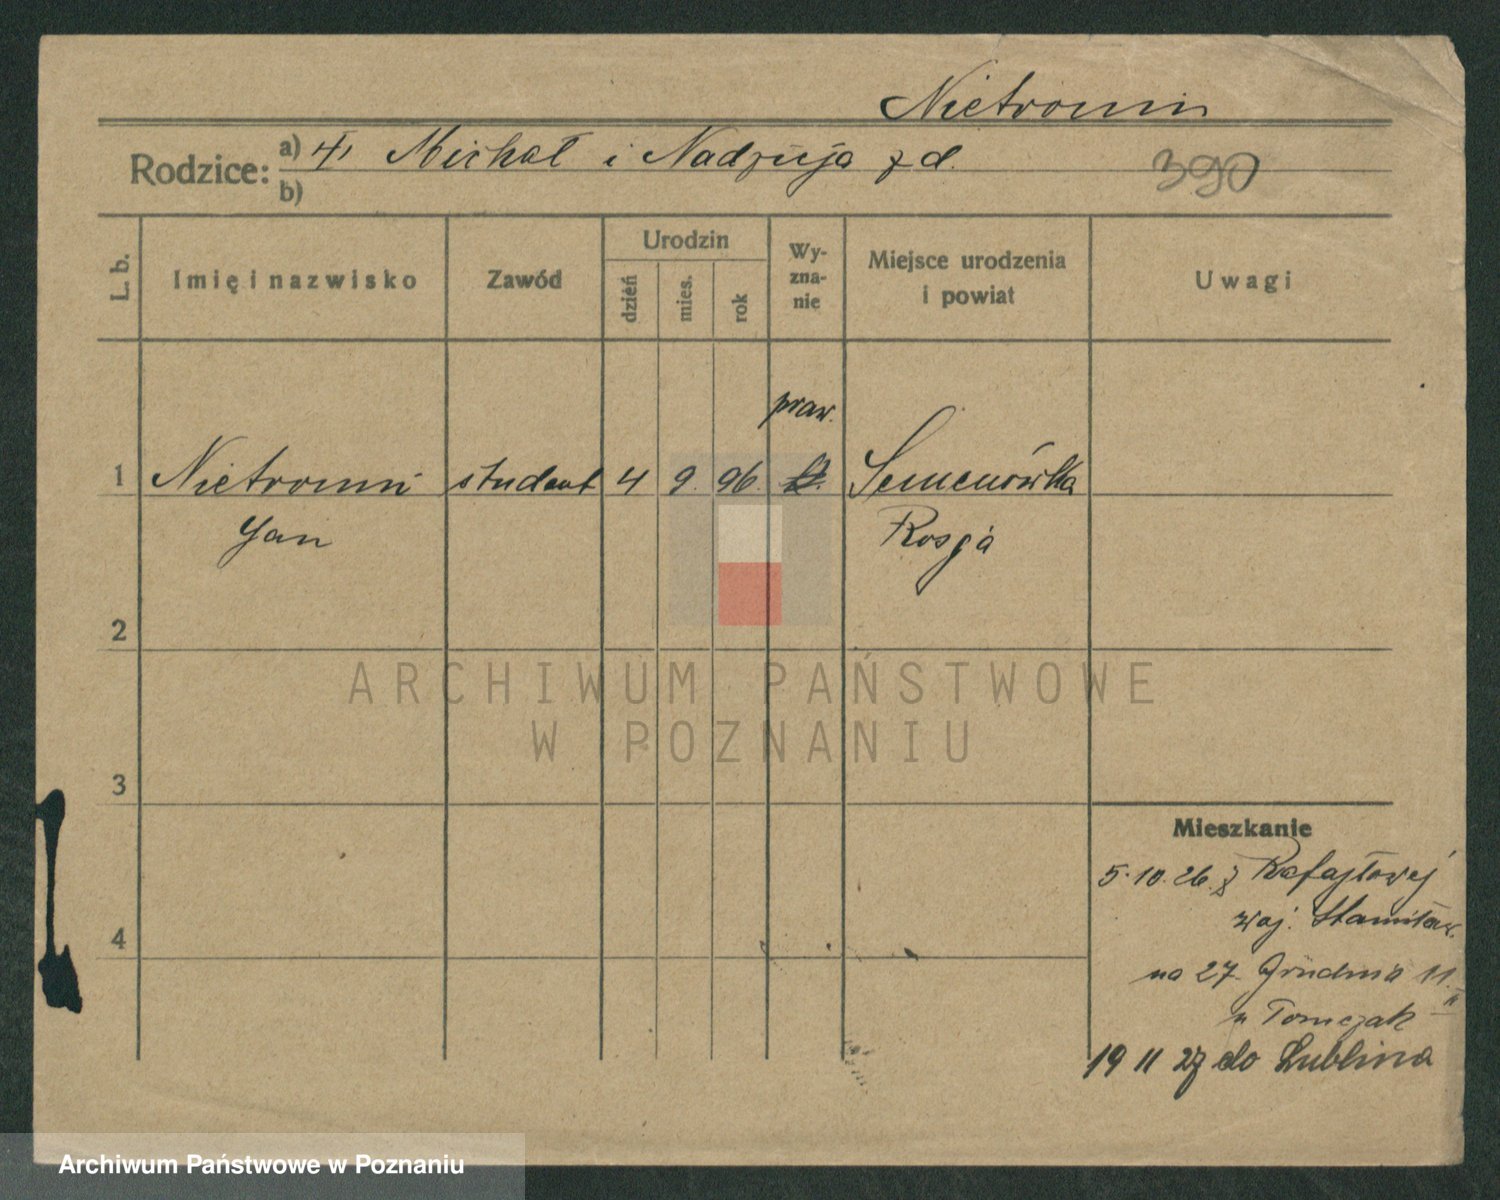 Nietronin
Rodzice: a) Michał i Nadzieja z d.
390
b)
L. b.
Imię i nazwisko
Zawód
Urodzin
dzień
mies.
rok
Wy-
zna-
nie
Miejsce urodzenia
i powiat
Uwagi
praw.
1 student 4 9. 96. Semenówka
Jan Rosja
2
3
4
ARCHIWUM PAŃSTWOWE
W POZNANIU
Mieszkanie
5.10.26. z Rafajłowej
woj. Stanisław.
na 27 Grudnia 11.
II
u Tomczak
19 11 27 do Lublina
Archiwum Państwowe w Poznaniu